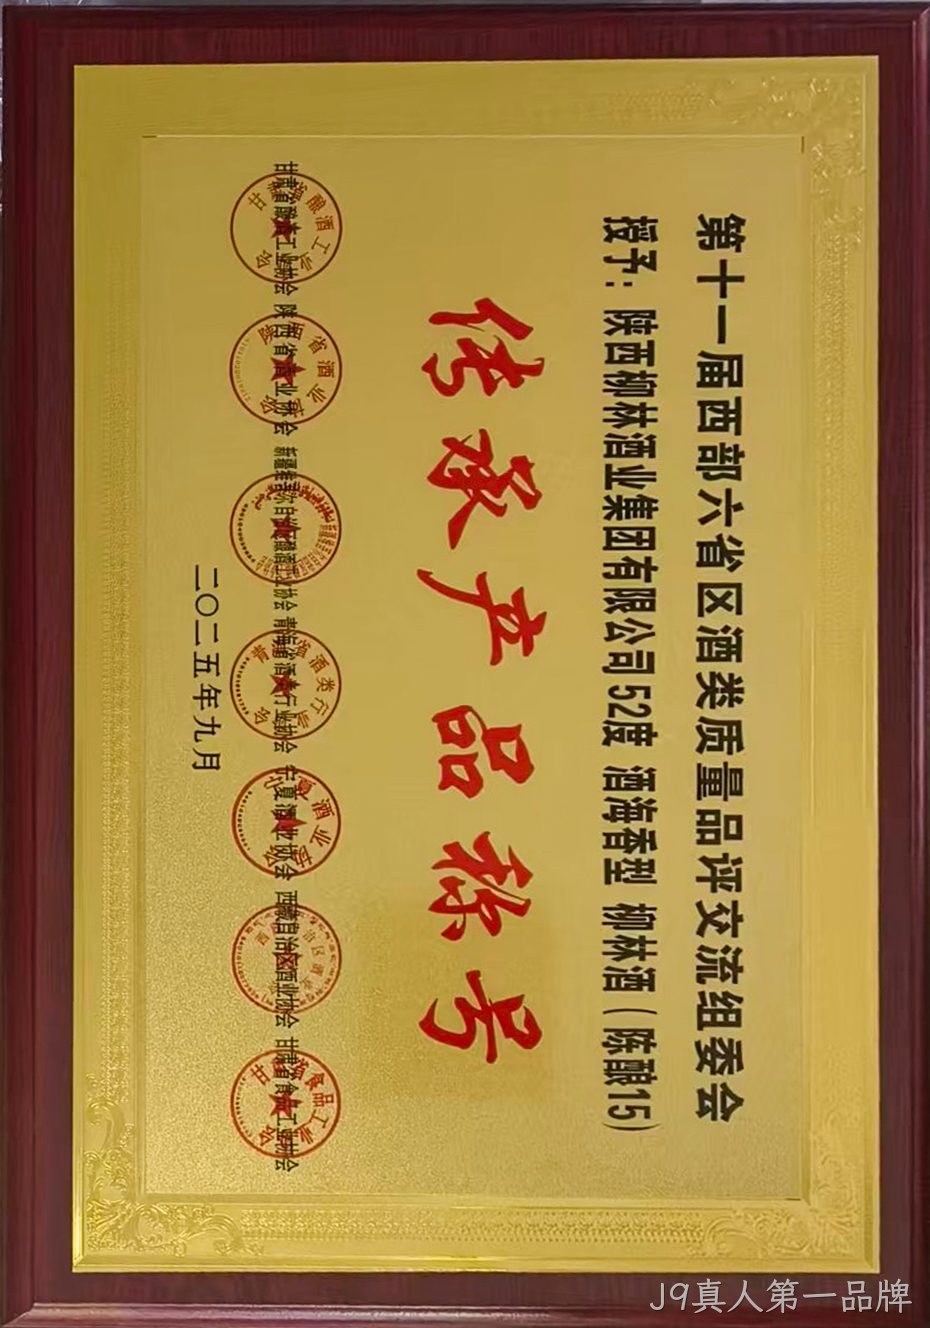 第十一届西部六省区酒类质量品评交流组委会
授予：陕西柳林酒业集团有限公司52度 酒海香型 柳林酒（陈酿15）
传承产品称号
甘肃省酿酒工业协会 陕西省酒业协会 新疆维吾尔自治区酿酒工业协会 青海省酒类行业协会 宁夏酒业协会 西藏自治区酒业协会 甘肃省食品工业协会
二〇二五年九月
J9真人第一品牌